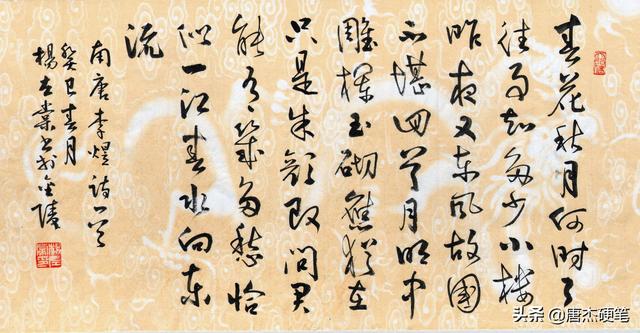 春花秋月何时了
往事知多少小楼
昨夜又东风故國
不堪回首月明中
雕栏玉砌應犹在
只是朱颜改问君
能有幾多愁恰
似一江春水向东
流
南唐李煜诗一首
癸巳春月
楊书于金陵
头条 @唐杰硬笔